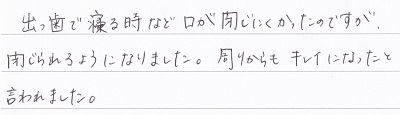 出っ歯で寝る時など口が閉じにくかったのですが、
閉じられるようになりました。周りからもキレイになったと
言われました。